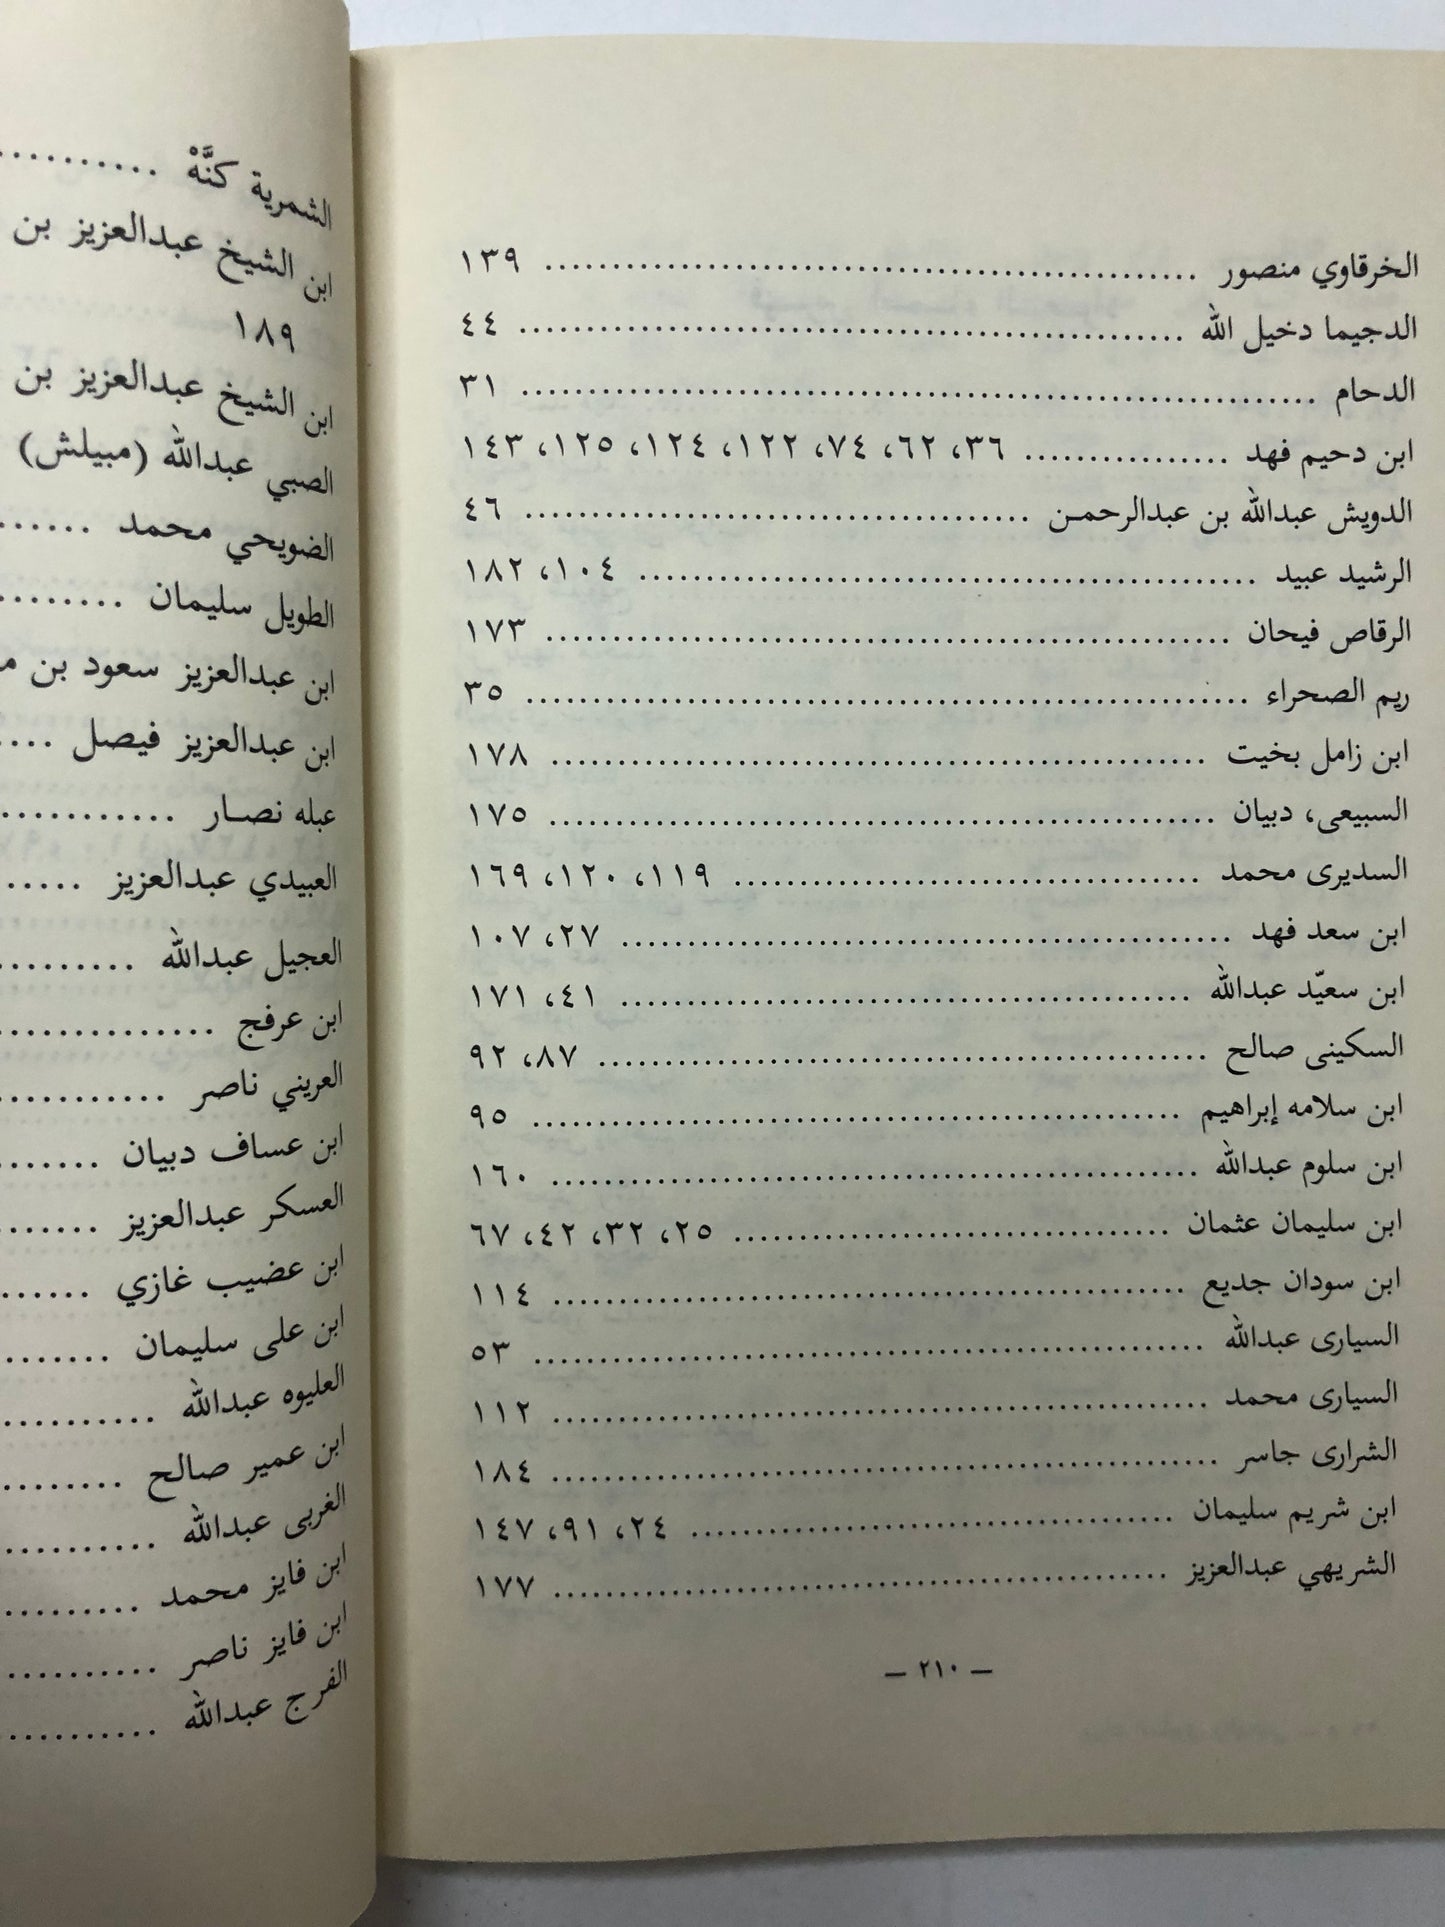 الخرقاوي منصور ........ ١٣٩
الدجيما دخيل الله ........ ٤٤
الدحام ........ ٣١
ابن دحيم فهد ........ ٣٦، ٦٢، ٧٤، ١٢٢، ١٢٤، ١٢٥، ١٤٣
الدويش عبدالله بن عبدالرحمـن ........ ٤٦
الرشيد عبيد ........ ١٠٤، ١٨٢
الرقاص فيحان ........ ١٧٣
ريم الصحراء ........ ٣٥
ابن زامل بخيت ........ ١٧٨
السبيعى، دبيان ........ ١٧٥
السديرى محمد ........ ١١٩، ١٢٠، ١٦٩
ابن سعد فهد ........ ٢٧، ١٠٧
ابن سعيّد عبدالله ........ ٤١، ١٧١
السكينى صالح ........ ٨٧، ٩٢
ابن سلامه إبراهيم ........ ٩٥
ابن سلوم عبدالله ........ ١٦٠
ابن سليمان عثمان ........ ٢٥، ٣٢، ٤٢، ٦٧
ابن سودان جديع ........ ١١٤
السيارى عبدالله ........ ٥٣
السيارى محمد ........ ١١٢
الشرارى جاسر ........ ١٨٤
ابن شريم سليمان ........ ٢٤، ٩١، ١٤٧
الشريهي عبدالعزيز ........ ١٧٧
— ٢١٠ —
الشمرية كنَّهْ ........
ابن الشيخ عبدالعزيز بن
١٨٩
ابن الشيخ عبدالعزيز بن
الصبي عبدالله (مبيلش)
الضويحي محمد ........
الطويل سليمان ........
ابن عبدالعزيز سعود بن
ابن عبدالعزيز فيصل ....
عبله نصـار ........
العبيدي عبدالعزيز .....
العجيل عبدالله ........
ابن عرفج ........
العريني ناصر ........
ابن عساف دبيان ........
العسكر عبدالعزيز ........
ابن عضيب غازي ........
ابن على سليمان ........
العليوه عبدالله ........
ابن عمير صالح ........
الغربى عبدالله ........
ابن فايز محمد ........
ابن فايز ناصر ........
الفرج عبدالله ........